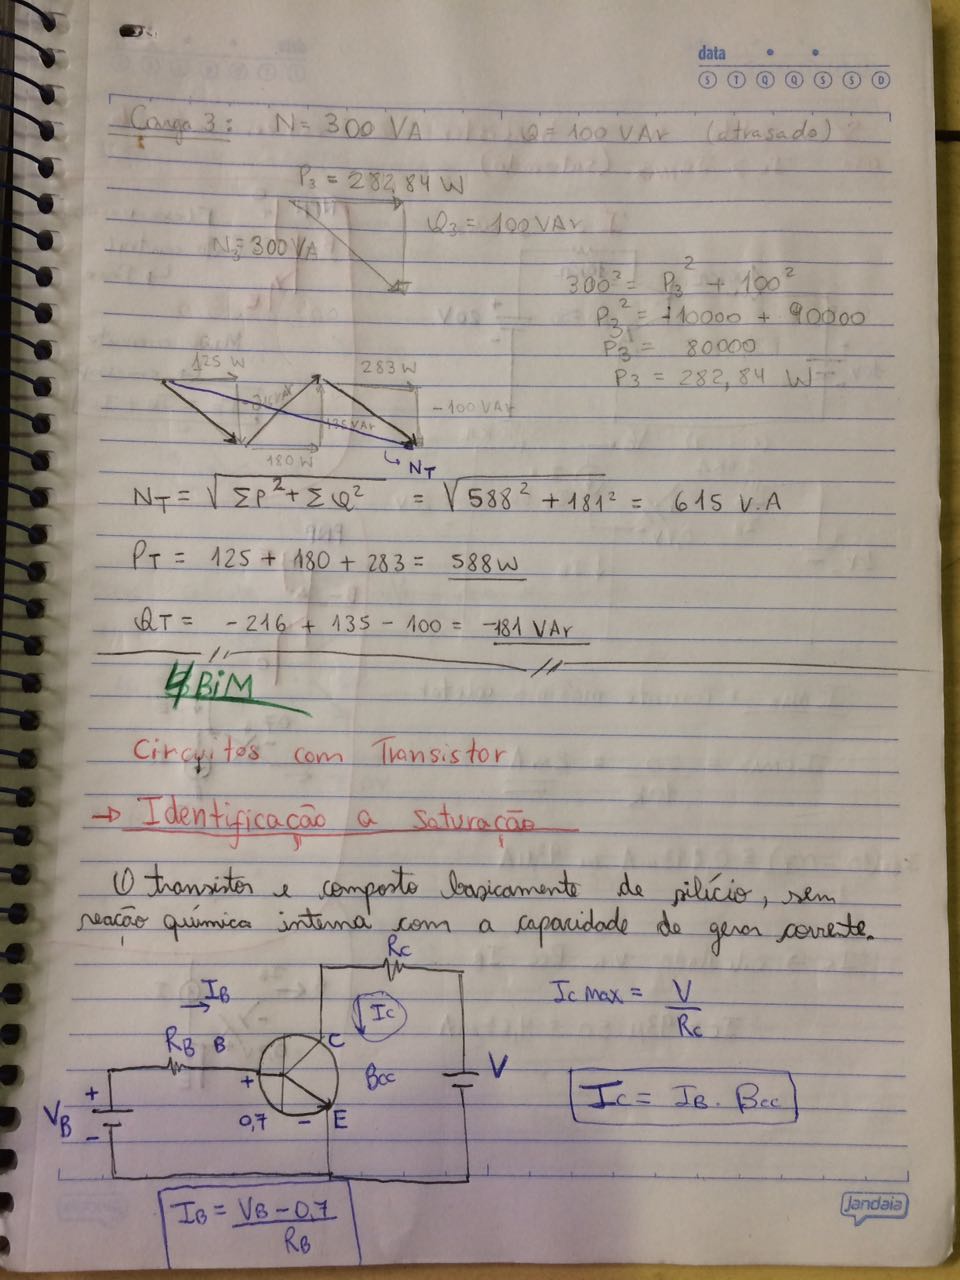 data
S T Q Q S S D
Carga 3: N = 300 VA Q = 100 VAr (atrasado)
P3 = 282,84 W
Q3 = 100 VAr
N3 = 300 VA
300² = P3² + 100²
P3² = -10000 + 90000
P3 = 80000
P3 = 282,84 W
125 W
283 W
-216 VAr
135 VAr
-100 VAr
180 W
NT
NT = √ΣP² + ΣQ² = √588² + 181² = 615 V.A
PT = 125 + 180 + 283 = 588 W
QT = -216 + 135 - 100 = -181 VAr
4 BiM
Circuitos com Transistor
→ Identificação a saturação
O transistor e composto basicamente de silício, sem
reação química interna com a capacidade de gerar corrente.
RC
IB
IC
IC MAX = V / RC
RB B
C
+
BCC
V
+
VB
-
0,7 - E
IC = IB . BCC
IB = VB - 0,7 / RB
Jandaia